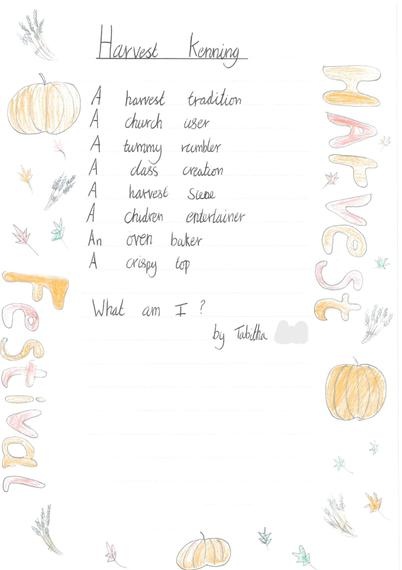 Harvest Kenning
A harvest tradition
A church user
A tummy rumbler
A class creation
A harvest Siene
A chudren entertainer
An oven baker
A crispy top
What am I ?
by Tabitha
Harvest
Festival